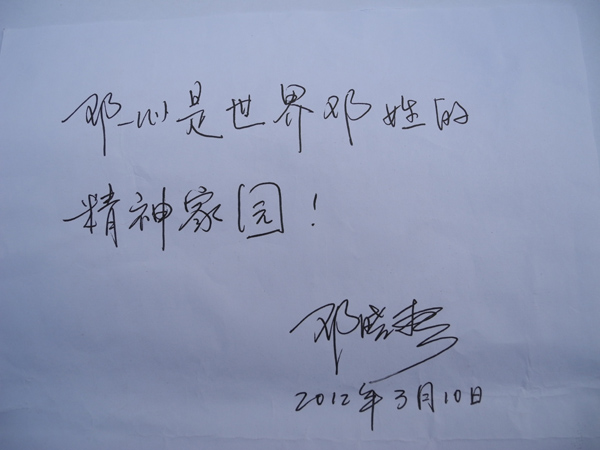 邓一心是世界邓姓的
精神家园!
邓
2012年3月10日